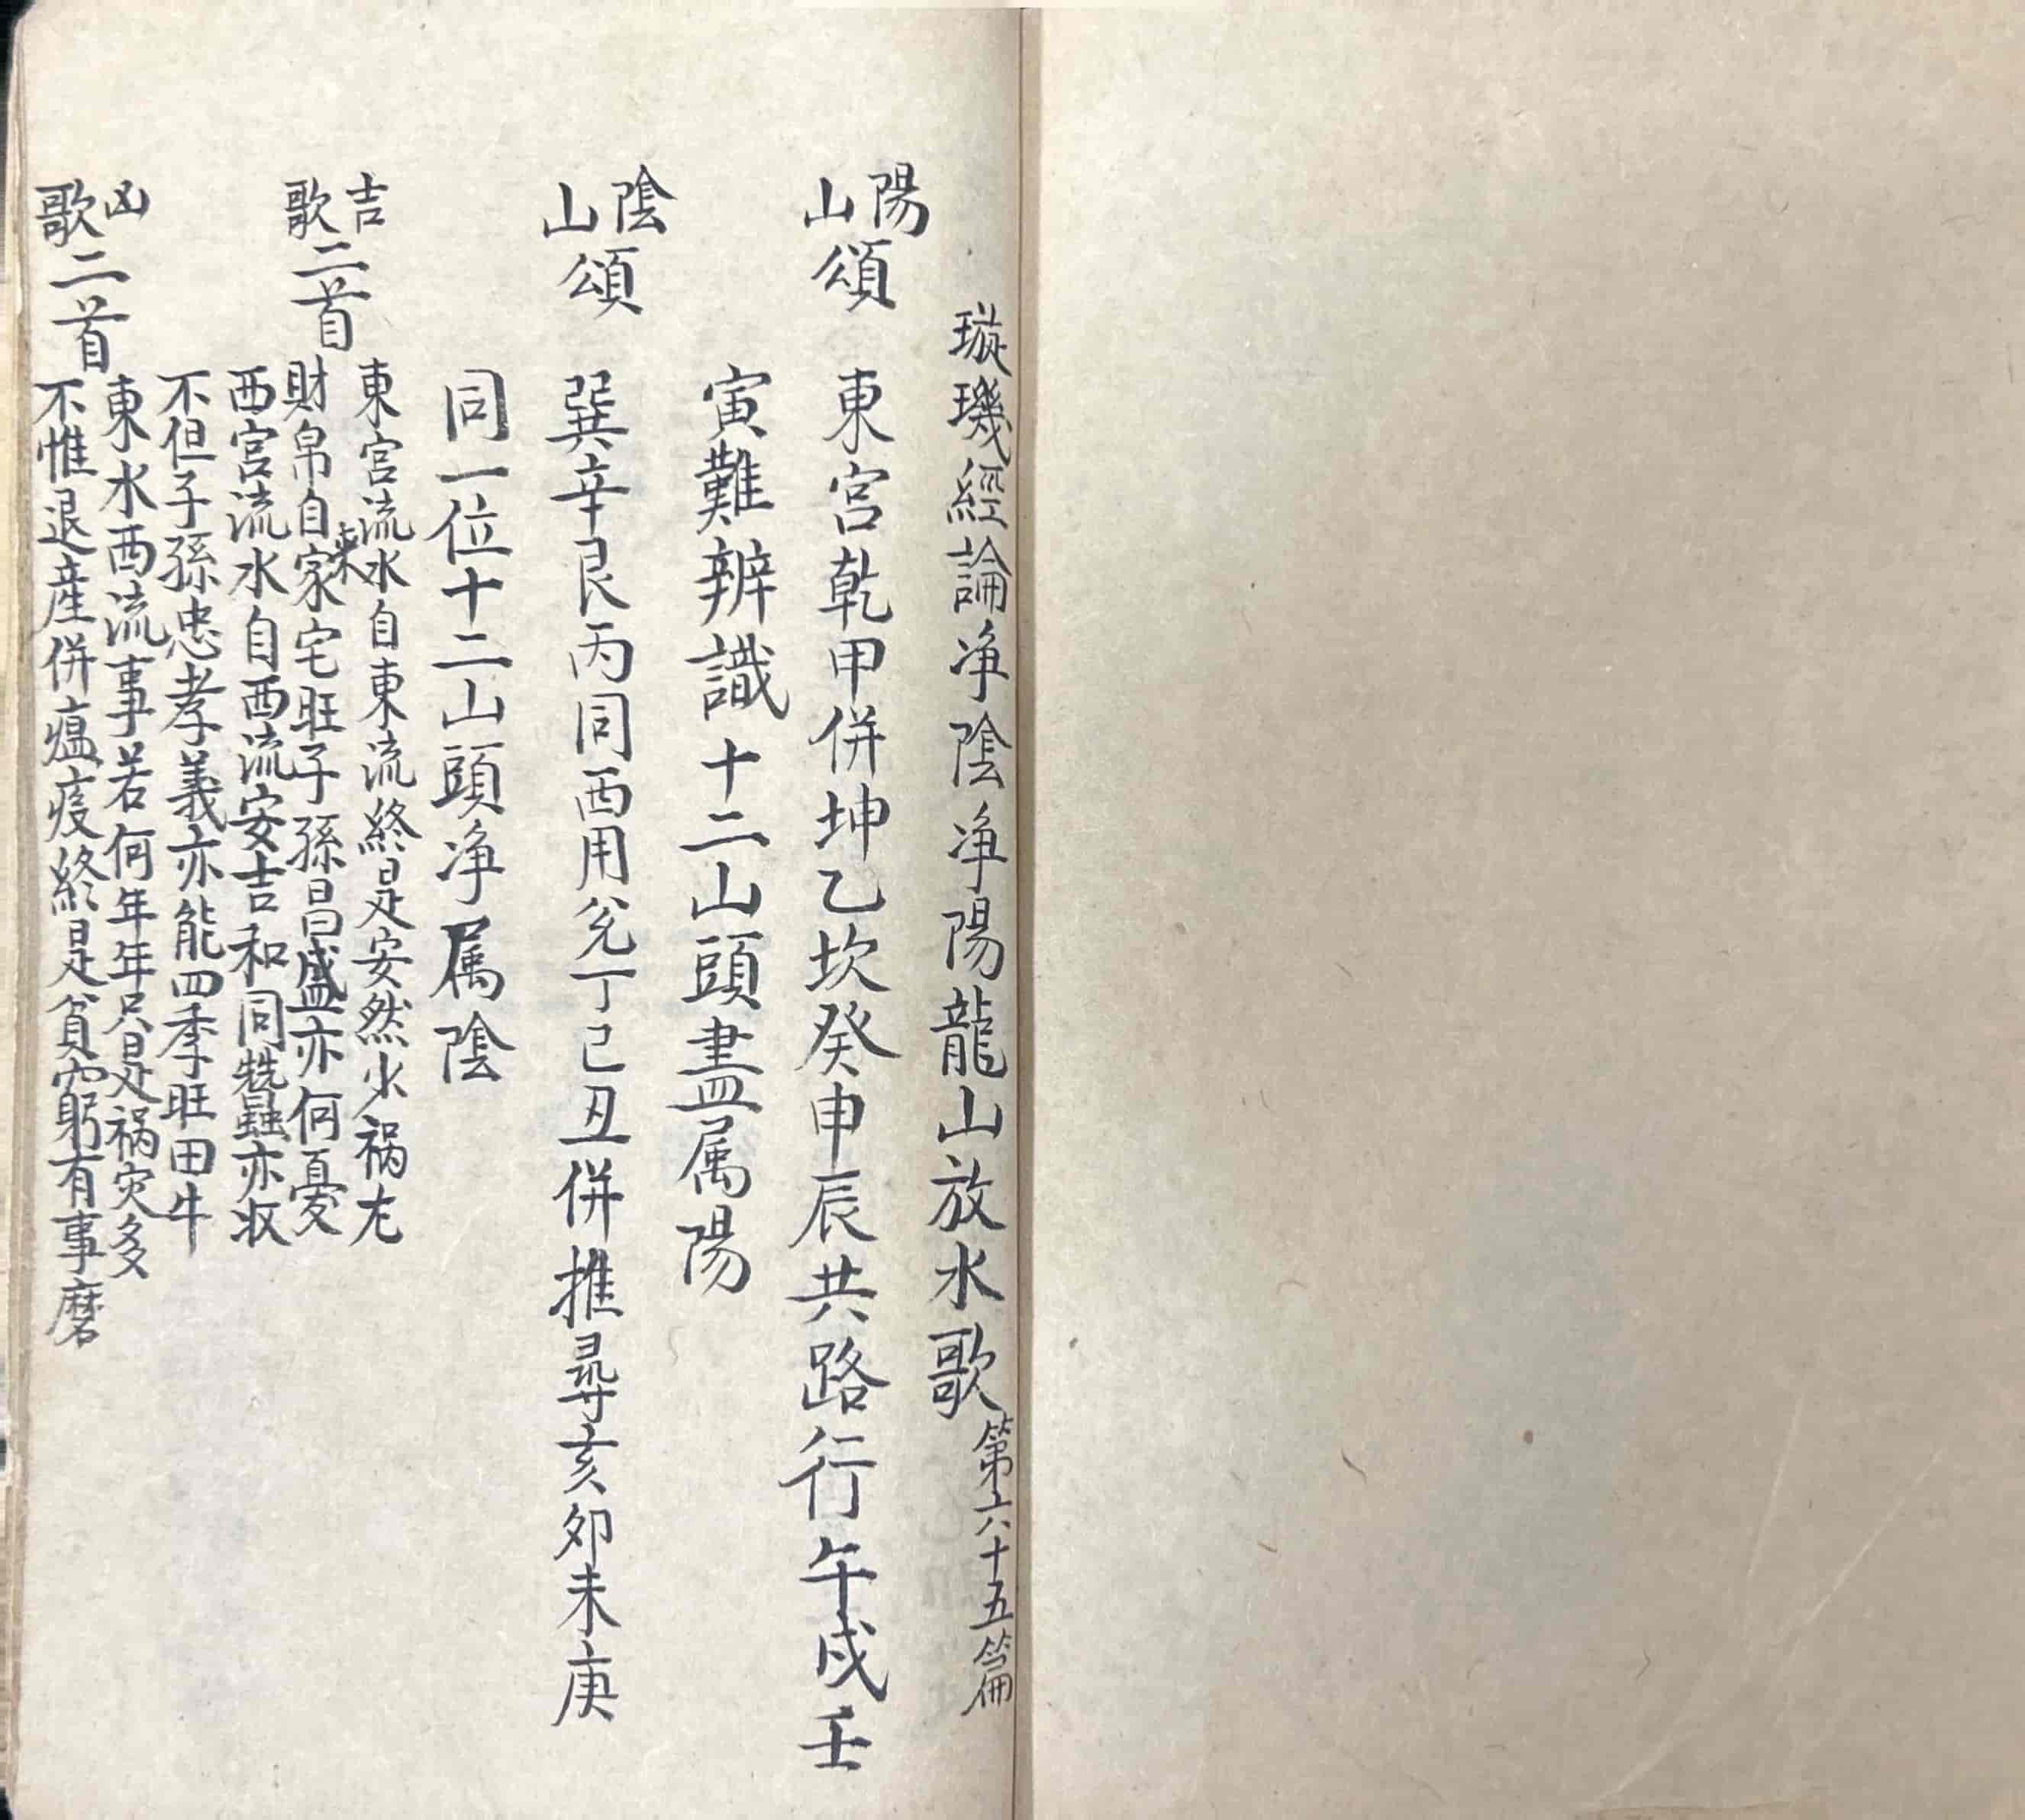 璇璣經論净陰净陽龍山放水歌第六十五篇
陽山頌 東宮乾甲併坤乙坎癸申辰共路行午戌壬
寅難辨識十二山頭盡属陽
陰山頌 巽辛艮丙同酉用兊丁巳丑併推尋亥卯未庚
同一位十二山頭净属陰
吉歌二首 東宮流水自東流終是安然火禍尤
財帛自來家宅旺子孫昌盛亦何憂
西宮流水自西流安吉和同蠶亦收
不但子孫忠孝義亦能四季旺田牛
凶歌二首 東水西流事若何年年只是禍灾多
不惟退産併瘟疫終是貧窮有事磨